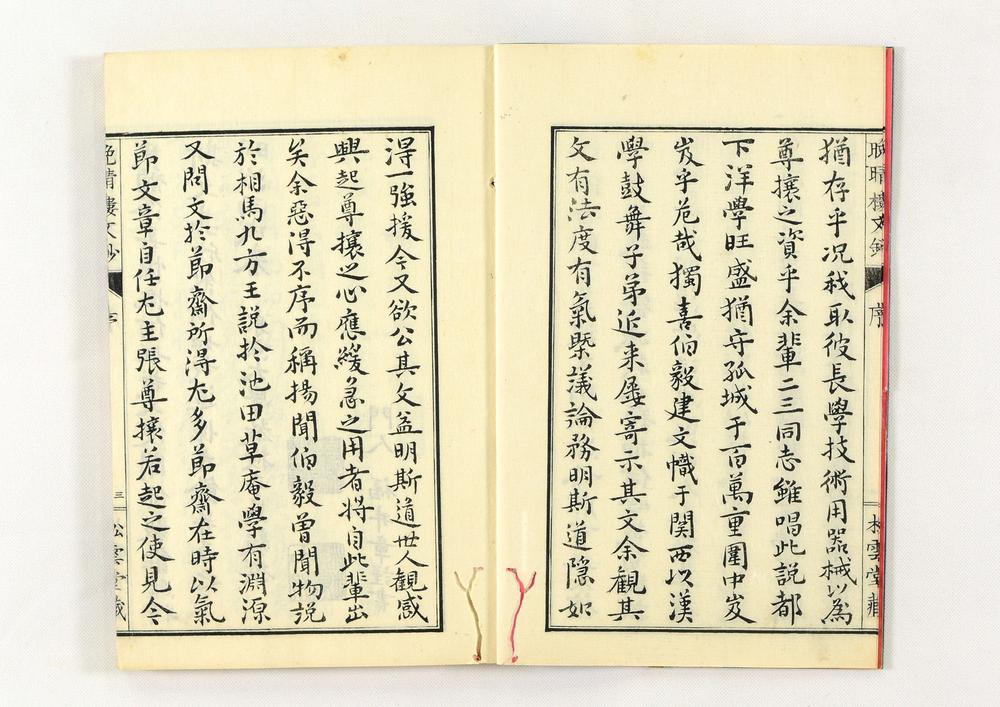 晩晴樓文鈔
序
松雲堂藏
猶存乎況我取彼長學技術用器械以為
尊攘之資乎余輩二三同志雖唱此説都
下洋學旺盛猶守孤城于百萬重圍中岌
岌乎危哉獨喜伯毅建文幟于関西以漢
學鼓舞子弟近来屡寄示其文余觀其
文有法度有氣槩議論務明斯道隠如
得一強援今又欲公其文益明斯道世人觀感
興起尊攘之心應緩急之用者将自此輩出
矣余惡得不序而稱揚聞伯毅曽聞物説
於相馬九方王説於池田草庵學有淵源
又問文於節齋所得尤多節齋在時以氣
節文章自任尤主張尊攘若起之使見今
晩晴樓文鈔
序
三
松雲堂藏